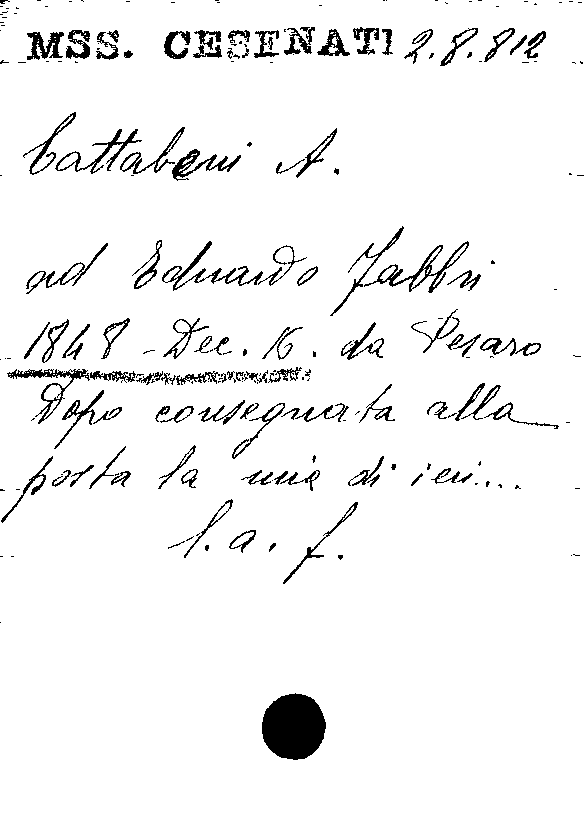 MSS. CESENATI 2.8.812
Cattabeni A.
ad Eduardo Fabbri
1848 - Dec. 16. da Pesaro
Dopo consegnata alla
posta la mia di ieri...
l. a. f.